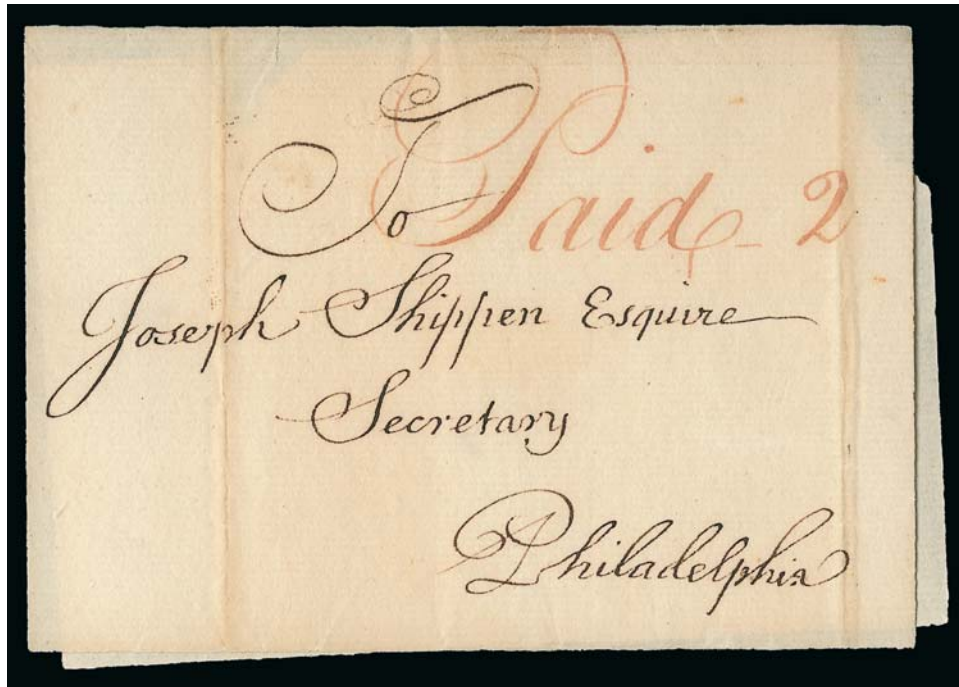 To
Paid 2
Joseph Shippen Esquire
Secretary
Philadelphia